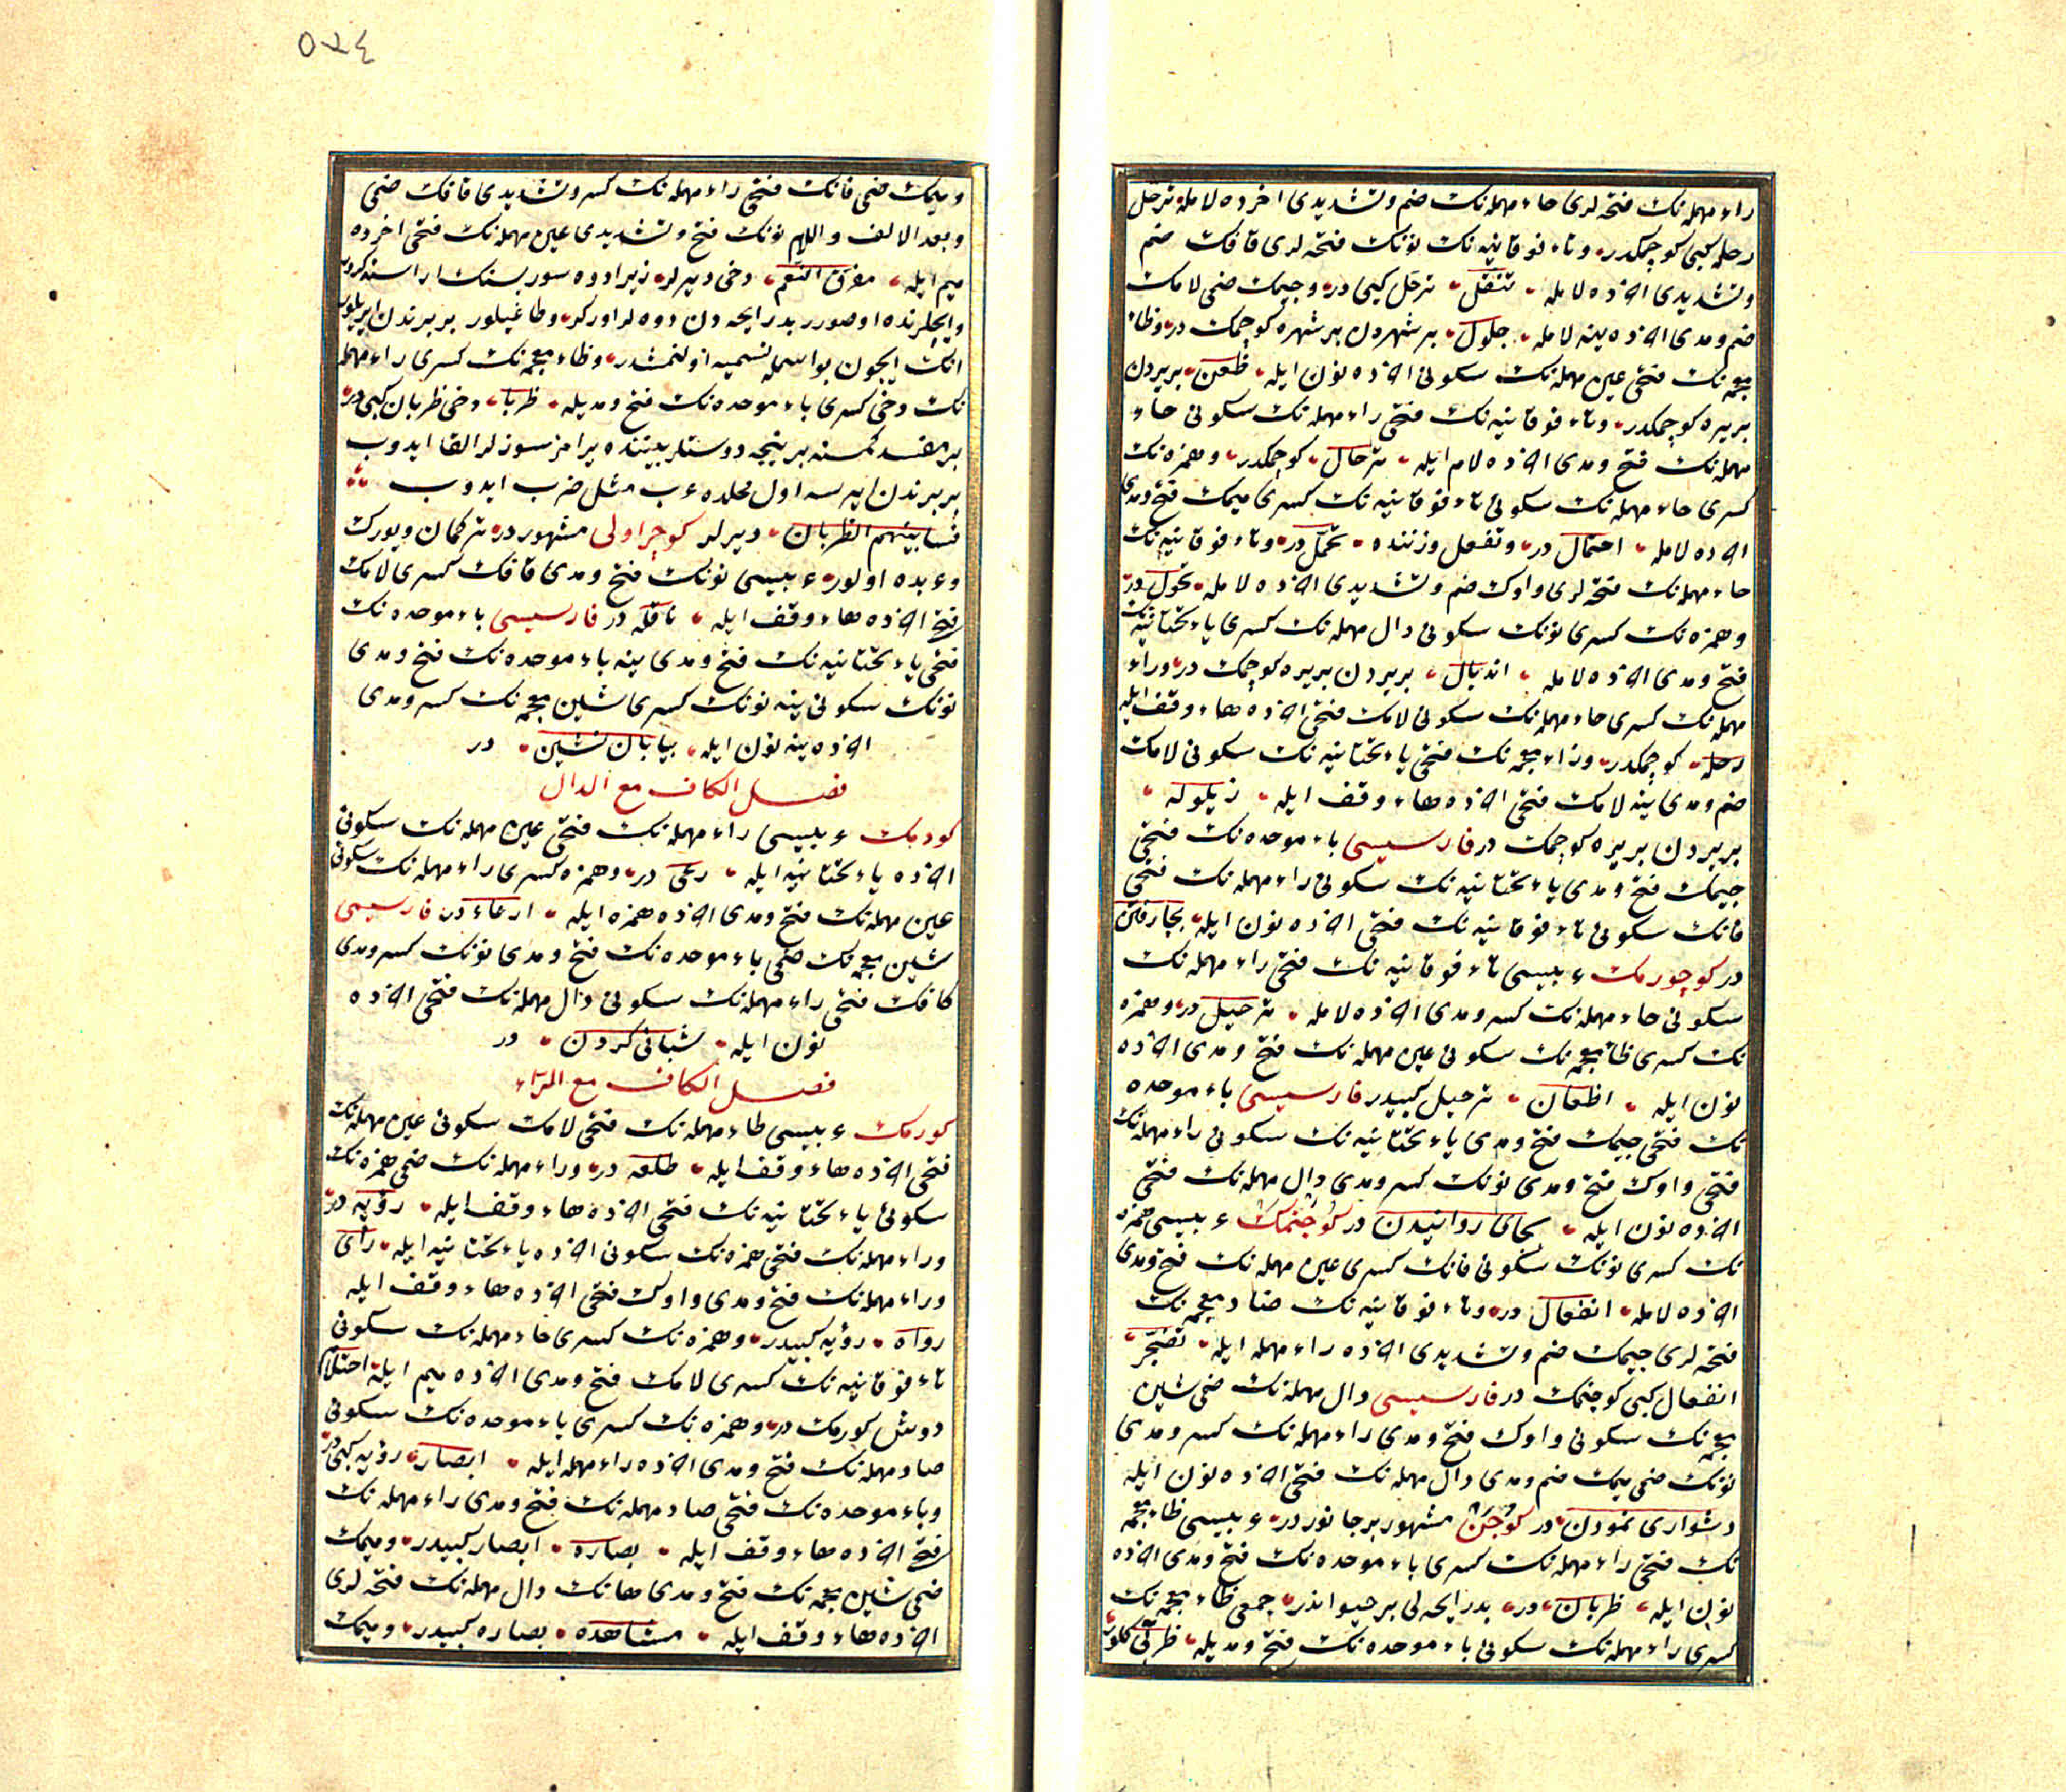 راء مهمله نك فتحه لرى حاء مهمله نك ضم وتشديدى اخرده لامله ترحل
رحله كبى كوچمكدر وتاء فوقانيه نك نونك فتحه لرى قافك ضم
وتشديدى اخرده لامله تنقل ترحل كبى در وجيمك ضمى لامك
ضم ومدى اخرده ينه لامله جلول بر شهردن بر شهره كوچمك در وظاء
معجمه نك فتحى عين مهمله نك سكونى اخرده نون ايله ظعن بر يردن
بر يره كوچمكدر وتاء فوقانيه نك فتحى راء مهمله نك سكونى حاء
مهمله نك فتح ومدى اخرده لام ايله ترحال كوچمكدر وهمزه نك
كسرى حاء مهمله نك سكونى تاء فوقانيه نك كسرى ميمك فتح ومدى
اخرده لامله احتمال در وتفعل وزننده تحمل در وتاء فوقانيه نك
حاء مهمله نك فتحه لرى واوك ضم وتشديدى اخرده لامله تحول در
وهمزه نك كسرى نونك سكونى دال مهمله نك كسرى ياء تحتانيه نك
فتح ومدى اخرده لامله انديال بر يردن بر يره كوچمك در وراء
مهمله نك كسرى حاء مهمله نك سكونى لامك فتحى اخرده هاء وقف ايله
رحله كوچمكدر وزاء معجمه نك فتحى ياء تحتانيه نك سكونى لامك
ضم ومدى ينه لامك فتحى اخرده هاء وقف ايله زيلوله
بر يردن بر يره كوچمك در فارسيسى باء موحده نك فتحى
جيمك فتح ومدى ياء تحتانيه نك سكونى راء مهمله نك فتحى
فانك سكونى تاء فوقانيه نك فتحى اخرده نون ايله بجارفتن
در كوچورمك عربيسى تاء فوقانيه نك فتحى راء مهمله نك
سكونى حاء مهمله نك كسر ومدى اخرده لامله ترحيل در وهمزه
نك كسرى ظاء معجمه نك سكونى عين مهمله نك فتح ومدى اخرده
نون ايله اظعان ترحيل كبيدر فارسيسى باء موحده
نك فتحى جيمك فتح ومدى ياء تحتانيه نك سكونى راء مهمله نك
فتحى واوك فتح ومدى نونك كسر ومدى دال مهمله نك فتحى
اخرده نون ايله بجاى روانيدن در كوجنمك عربيسى همزه
نك كسرى نونك سكونى فانك كسرى عين مهمله نك فتح ومدى
اخرده لامله انفعال در وتاء فوقانيه نك ضاد معجمه نك
فتحه لرى جيمك ضم وتشديدى اخرده راء مهمله ايله تضجر
انفعال كبى كوجنمك در فارسيسى دال مهمله نك ضمى شين
معجمه نك سكونى واوك فتح ومدى راء مهمله نك كسر ومدى
نونك ضمى ميمك ضم ومدى دال مهمله نك فتحى اخرده نون ايله
دشوارى نمودن در كوجن مشهور بر جانوردر عربيسى ظاء معجمه
نك فتحى راء مهمله نك كسرى باء موحده نك فتح ومدى اخرده
نون ايله ظربان در بد رايحه لى بر حيواندر جمعى ظاء معجمه نك
كسرى راء مهمله نك سكونى باء موحده نك فتح ومديله ظربى كلور
٥٧٤
وميمك ضمى فانك فتحى راء مهمله نك كسر وتشديدى قافك ضمى
وبعد الالف واللام نونك فتح وتشديدى عين مهمله نك فتحى اخرده
ميم ايله مفرق النعم دخى ديرلر زيرا دوه سوريسنك اراسنه كروب
وايچلرنده اوصورر بد رايحه دن دوه لر اوركر وطاغيلور بر برندن ايريلور
انك ايچون بو اسمله تسميه اولنمشدر وظاء معجمه نك كسرى راء مهمله
نك دخى كسرى باء موحده نك فتح ومديله ظربا دخى ظربان كبى در
بر مفسد كمسنه بر نيجه دوستلر بيننده يرامز سوزلر القا ايدوب
بر برندن ايرسه اول محلده عرب مثل ضرب ايدوب
فسا بينهم الظربان ديرلر كوچر اولى مشهور در تركمان ويورك
وعربده اولور عربيسى نونك فتح ومدى قافك كسرى لامك
فتحى اخرده هاء وقف ايله ناقله در فارسيسى باء موحده نك
فتحى ياء تحتانيه نك فتح ومدى ينه باء موحده نك فتح ومدى
نونك سكونى ينه نونك كسرى شين معجمه نك كسر ومدى
اخرده ينه نون ايله بيابان نشين در
فصل الكاف مع الدال
كودمك عربيسى راء مهمله نك فتحى عين مهمله نك سكونى
اخرده ياء تحتانيه ايله رعى در وهمزه كسرى راء مهمله نك سكونى
عين مهمله نك فتح ومدى اخرده همزه ايله ارعاء در فارسيسى
شين معجمه نك ضمى باء موحده نك فتح ومدى نونك كسر ومدى
كافك فتحى راء مهمله نك سكونى دال مهمله نك فتحى اخرده
نون ايله شبانى كردن در
فصل الكاف مع الراء
كورمك عربيسى طاء مهمله نك فتحى لامك سكونى عين مهمله نك
فتحى اخرده هاء وقف ايله طلعه در وراء مهمله نك ضمى همزه نك
سكونى ياء تحتانيه نك فتحى اخرده هاء وقف ايله رؤيه در
وراء مهمله نك فتحى همزه نك سكونى اخرده ياء تحتانيه ايله رأى
وراء مهمله نك فتح ومدى واوك فتحى اخرده هاء وقف ايله
رواه رؤيه كبيدر وهمزه نك كسرى حاء مهمله نك سكونى
تاء فوقانيه نك كسرى لامك فتح ومدى اخرده ميم ايله احتلام
دوش كورمك در وهمزه نك كسرى باء موحده نك سكونى
صاد مهمله نك فتح ومدى اخرده راء مهمله ايله ابصار رؤيه كبى در
وباء موحده نك فتحى صاد مهمله نك فتح ومدى راء مهمله نك
فتحى اخرده هاء وقف ايله بصاره ابصار كبيدر وميمك
ضمى شين معجمه نك فتح ومدى هانك دال مهمله نك فتحه لرى
اخرده هاء وقف ايله مشاهده بصاره كبيدر وميمك